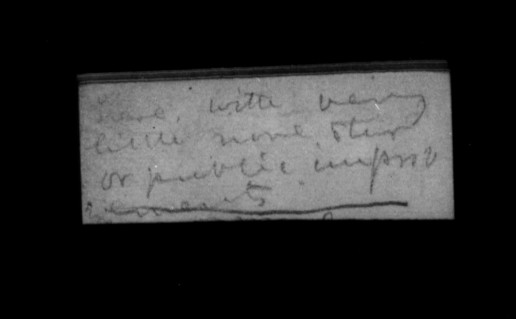 with very
little more other
or public improv
ements